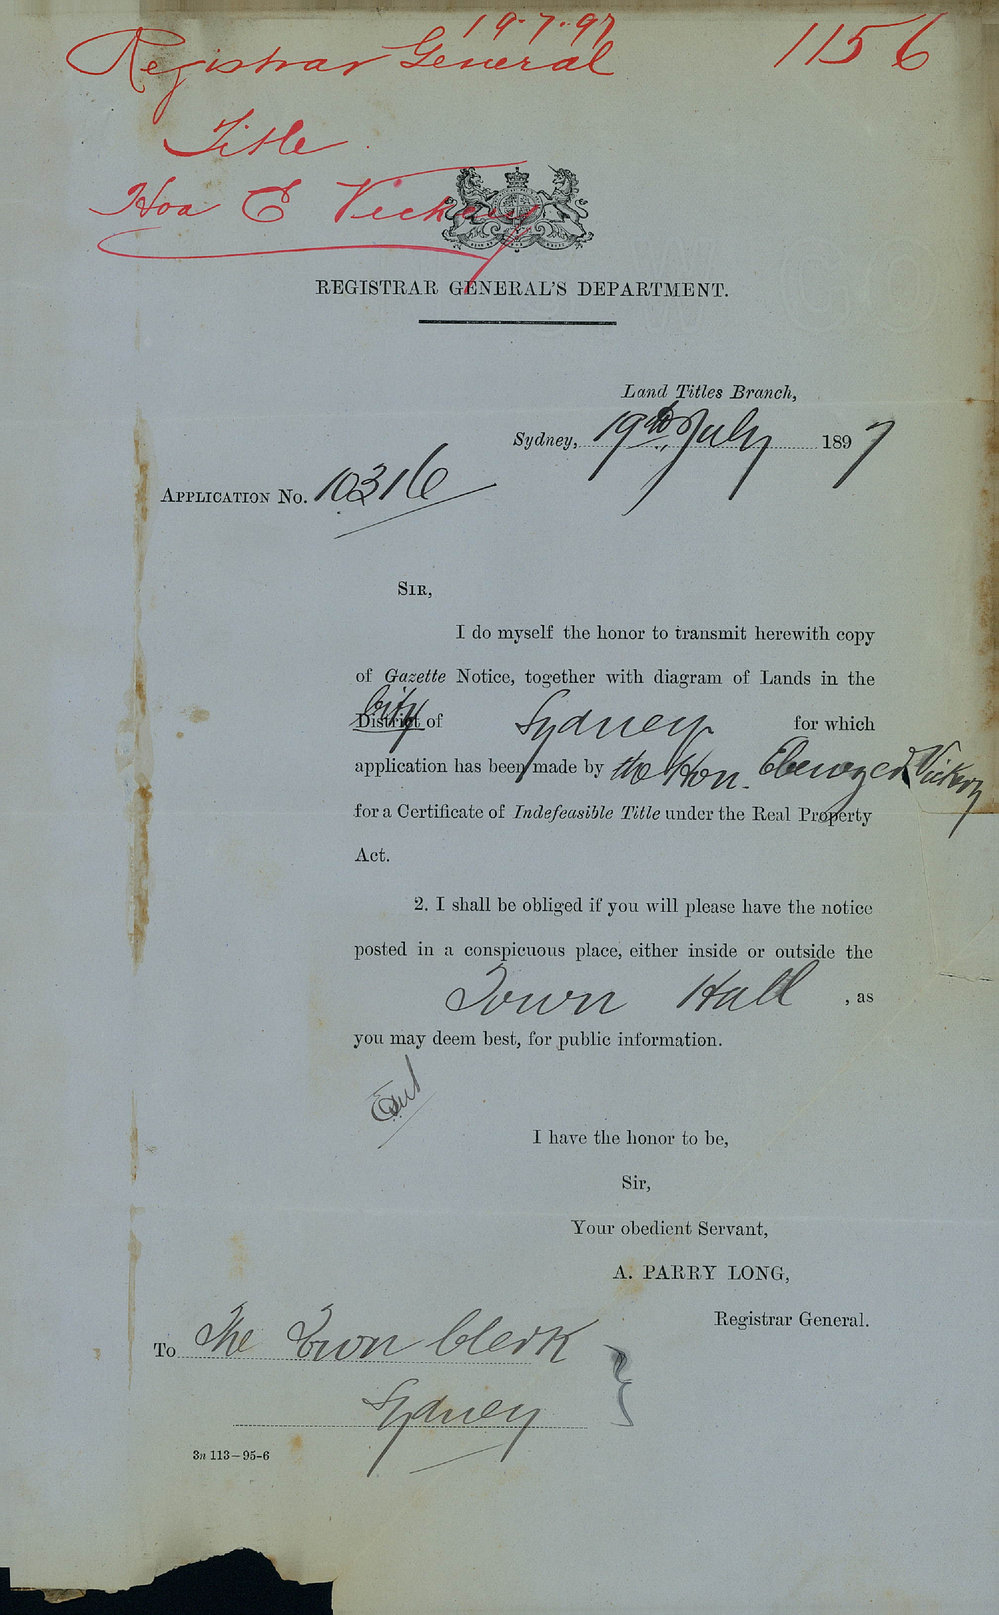 19.7.97
Registrar General
1156
Title
Hon E Vickery
REGISTRAR GENERAL'S DEPARTMENT.
Land Titles Branch,
Sydney, 19th July 1897
APPLICATION No. 10316
SIR,
I do myself the honor to transmit herewith copy
of Gazette Notice, together with diagram of Lands in the
City
District of Sydney for which
application has been made by the Hon. Ebenezer Vickery
for a Certificate of Indefeasible Title under the Real Property
Act.
2. I shall be obliged if you will please have the notice
posted in a conspicuous place, either inside or outside the
Town Hall, as
you may deem best, for public information.
I have the honor to be,
Sir,
Your obedient Servant,
A. PARRY LONG,
Registrar General.
To The Town Clerk
Sydney
3n 113-95-6